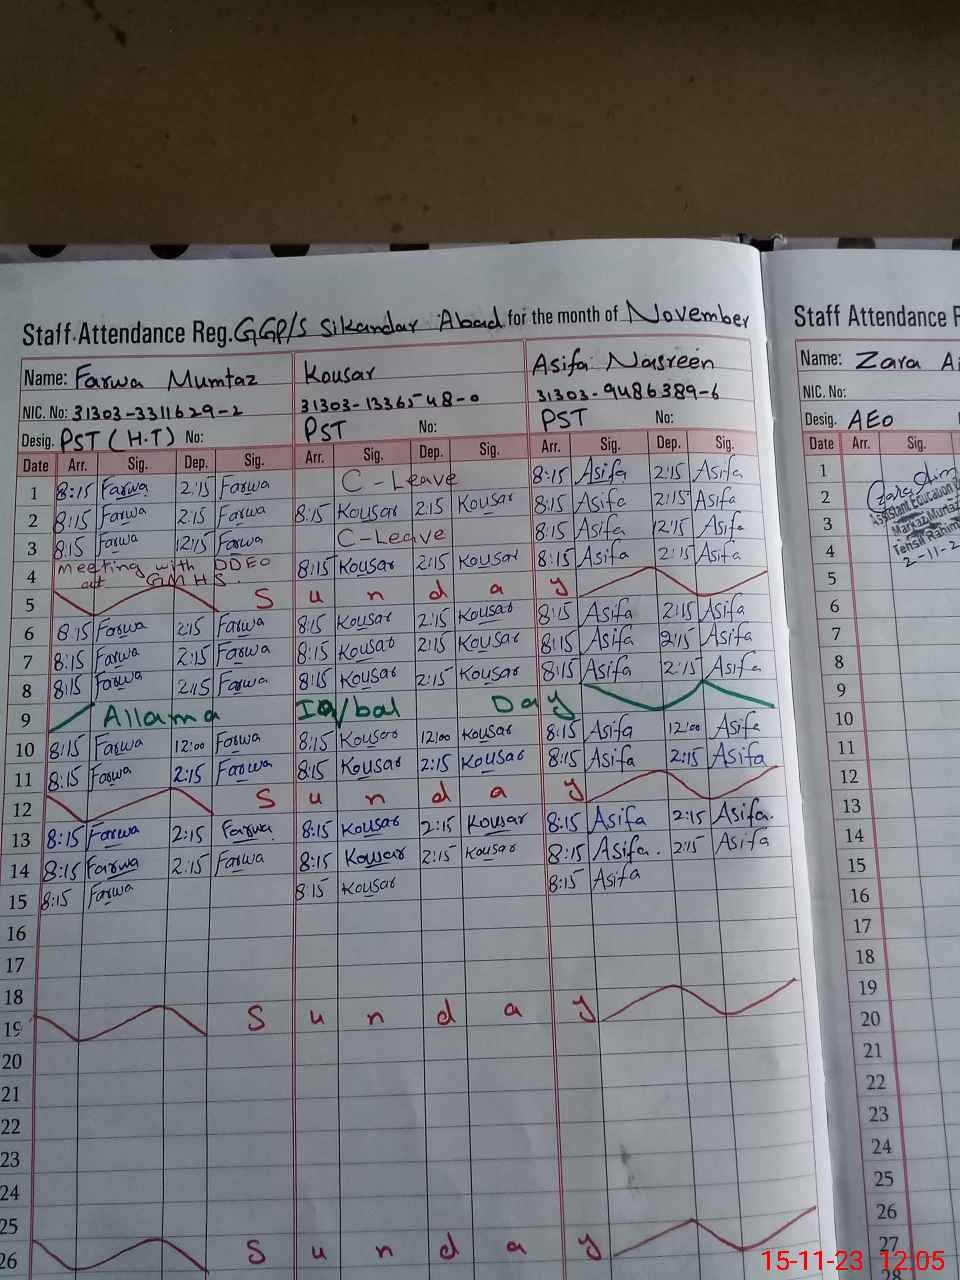 Staff Attendance Reg. GGP/S Sikandar Abad for the month of November
Name: Farwa Mumtaz Kousar Asifa Nasreen
NIC. No: 31303-3311629-2 31303-1336548-0 31303-9486389-6
Desig. PST (H.T) No: PST No: PST No:
Date Arr. Sig. Dep. Sig. Arr. Sig. Dep. Sig. Arr. Sig. Dep. Sig.
1 8:15 Farwa 2:15 Farwa C-Leave 8:15 Asifa 2:15 Asifa
2 8:15 Farwa 2:15 Farwa 8:15 Kousar 2:15 Kousar 8:15 Asifa 2:15 Asifa
3 8:15 Farwa 2:15 Farwa C-Leave 8:15 Asifa 2:15 Asifa
4 Meeting with DDEO at GMHS. 8:15 Kousar 2:15 Kousar 8:15 Asifa 2:15 Asifa
5 Sunday
6 8:15 Farwa 2:15 Farwa 8:15 Kousar 2:15 Kousar 8:15 Asifa 2:15 Asifa
7 8:15 Farwa 2:15 Farwa 8:15 Kousar 2:15 Kousar 8:15 Asifa 2:15 Asifa
8 8:15 Farwa 2:15 Farwa 8:15 Kousar 2:15 Kousar 8:15 Asifa 2:15 Asifa
9 Allama Iqbal Day
10 8:15 Farwa 12:00 Farwa 8:15 Kousar 12:00 Kousar 8:15 Asifa 12:00 Asifa
11 8:15 Farwa 2:15 Farwa 8:15 Kousar 2:15 Kousar 8:15 Asifa 2:15 Asifa
12 Sunday
13 8:15 Farwa 2:15 Farwa 8:15 Kousar 2:15 Kousar 8:15 Asifa 2:15 Asifa.
14 8:15 Farwa 2:15 Farwa 8:15 Kousar 2:15 Kousar 8:15 Asifa. 2:15 Asifa
15 8:15 Farwa 8:15 Kousar 8:15 Asifa
16
17
18
19 Sunday
20
21
22
23
24
25
26 Sunday
Staff Attendance
Name: Zara
NIC. No:
Desig. AEO
Date Arr. Sig.
1
2
3
4
5
6
7
8
9
10
11
12
13
14
15
16
17
18
19
20
21
22
23
24
25
26
27
28
Assistant Education
2-11-2
15-11-23 12:05